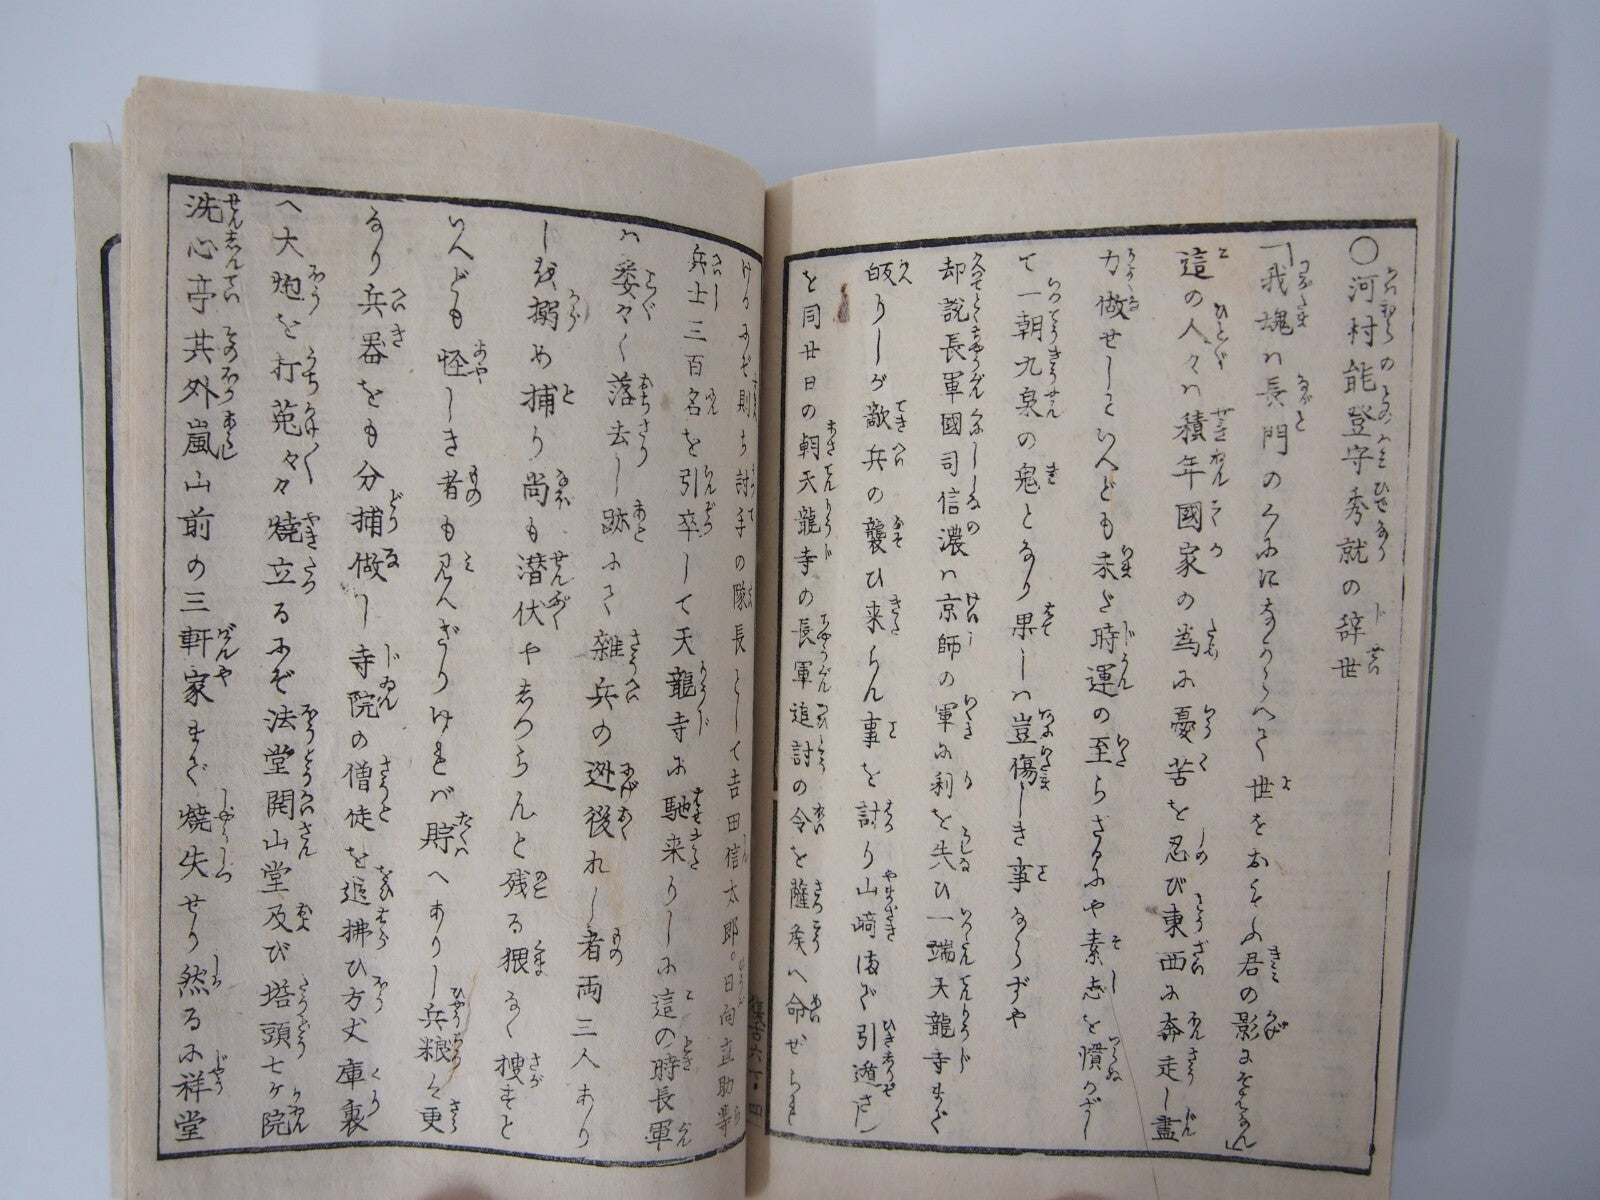 ○河村能登守秀就の辞世
「我魂ハ長門のくにになからへて世をおもふ君の影にそはなん」
這の人々ハ積年國家の為に憂苦を忍び東西に奔走し盡
力做せしといへども未だ時運の至らざるにや素志を償ハずし
て一朝九泉の鬼となり果しハ豈傷しき事ならずや
却説長軍國司信濃ハ京師の軍に利を失ひ一端天龍寺まで
皈りしが敵兵の襲ひ来らん事を討り山﨑までに引遁さし
を同廿日の朝天龍寺の長軍追討の令を薩侯へ命ぜられ
けるにぞ則ち討手の隊長として吉田信太郎。日向直助等
兵士三百名を引卒して天龍寺に馳来りしに這の時長軍
ハ委く落去し跡にて雑兵の迯後れし者両三人あり
しを搦め捕り尚も潜伏やしつらんと残る隈なく捜すと
いへども怪しき者も見へざりければ貯へありし兵粮は更
なり兵器をも分捕做し寺院の僧徒を追拂ひ方丈庫裏
へ大炮を打菟々焼立るにぞ法堂開山堂及び塔頭七ケ院
洗心亭其外嵐山前の三軒家まで焼失せり然るに祥堂